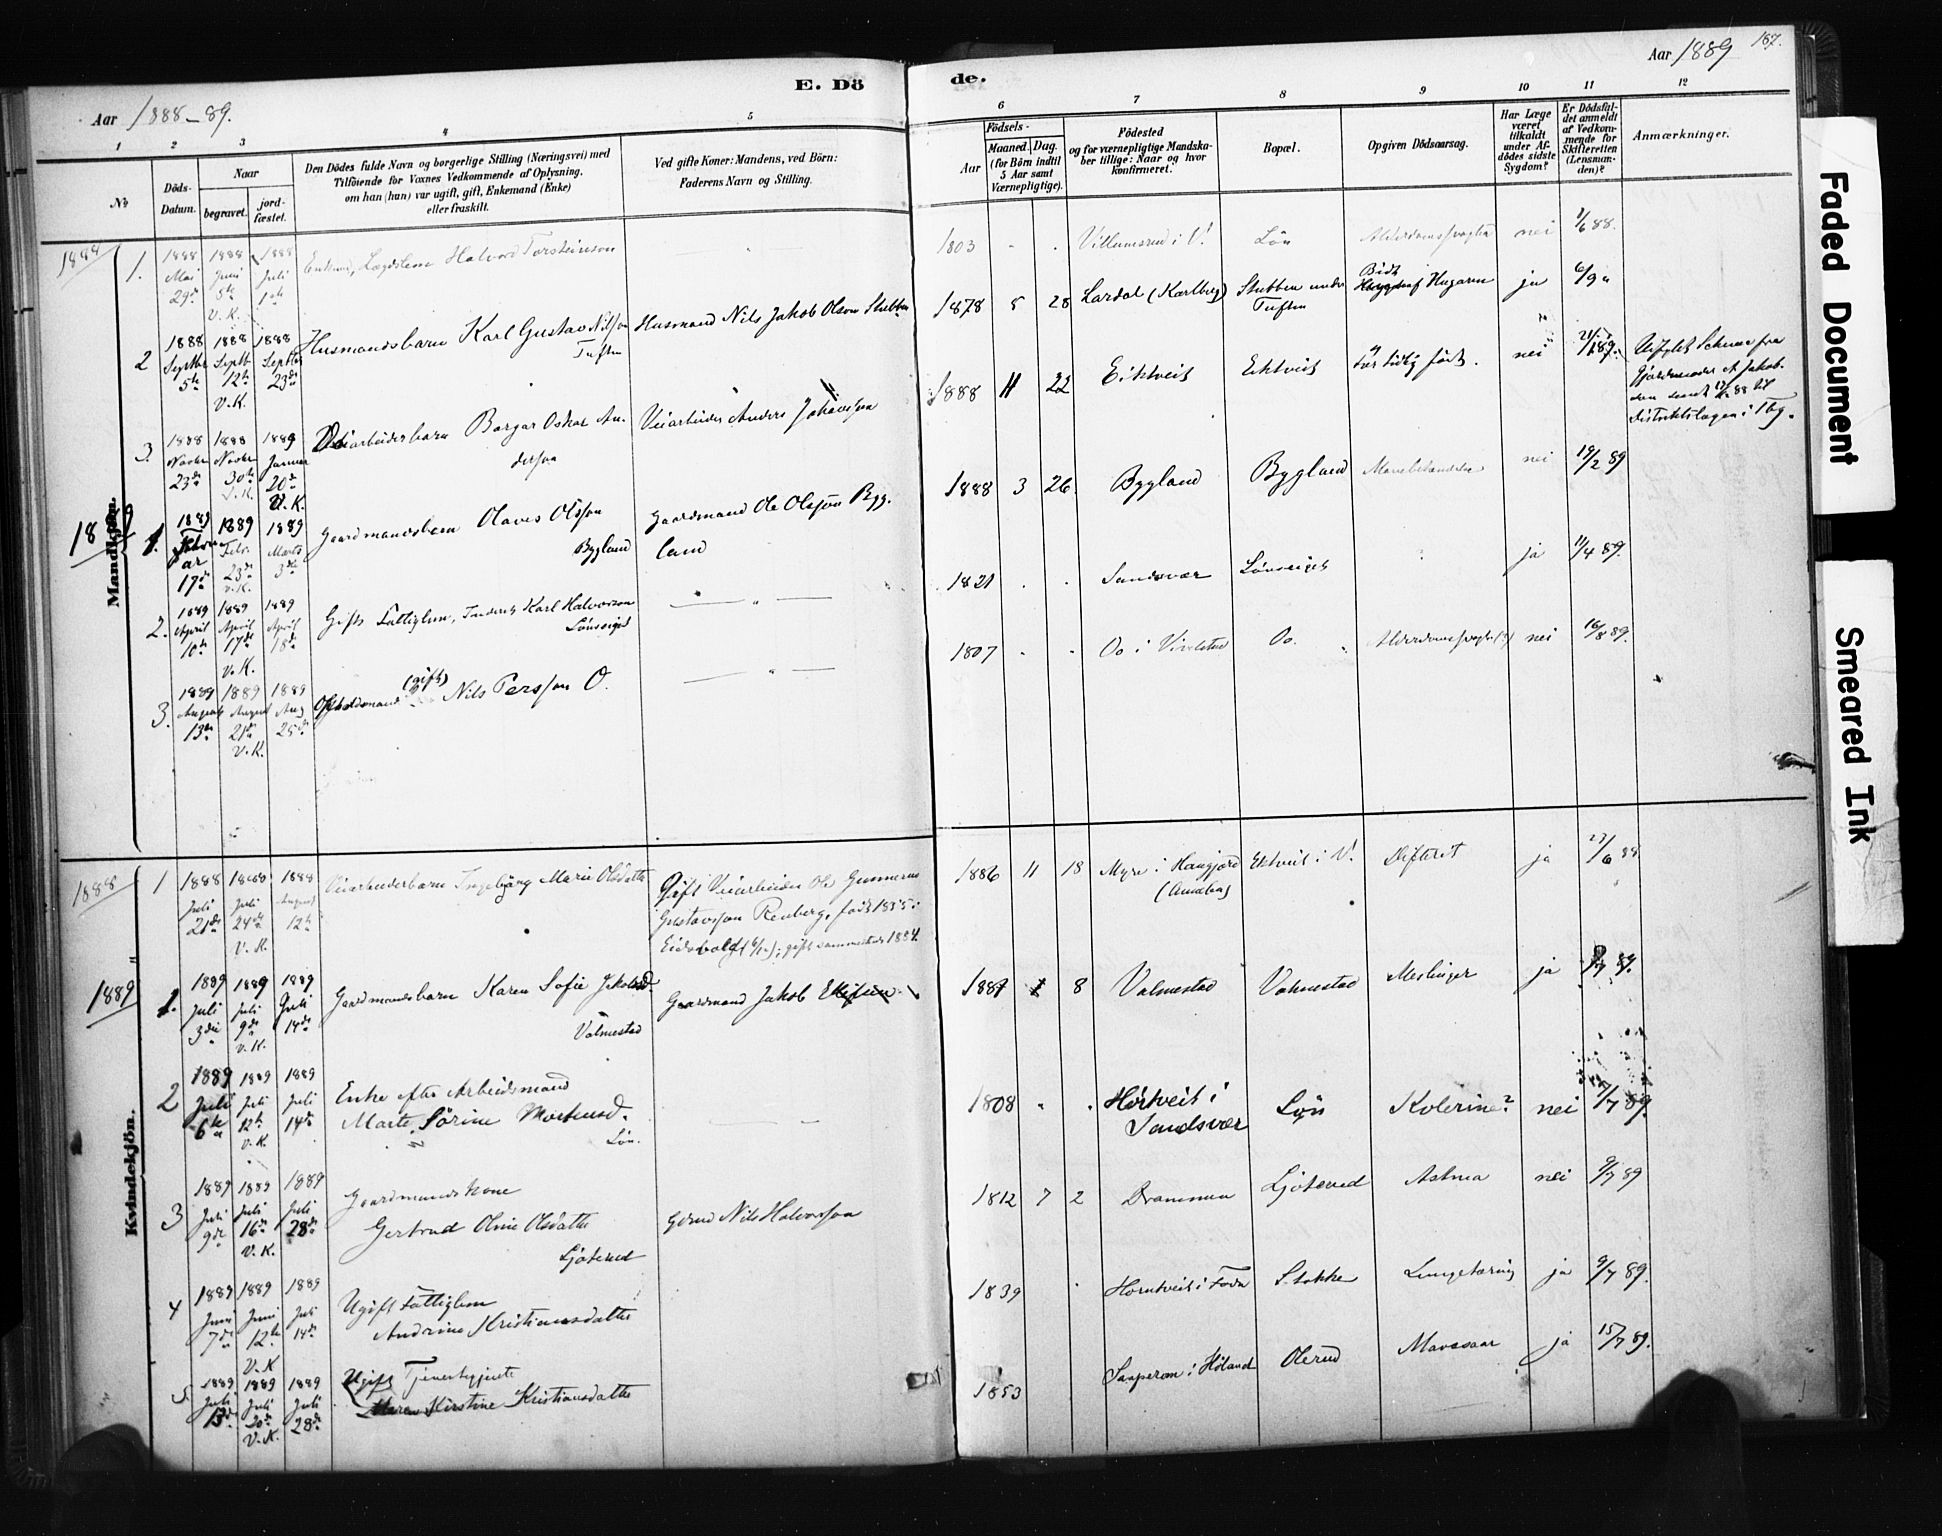 Aar 1888-89.
E. Dö
de.
Aar 1889
187.
1 2 3 4 5 6 7 8 9 10 11 12
No
Döds-Datum.
Naar
begravet.
jord-fæstet.
Den Dödes fulde Navn og borgerlige Stilling (Næringsvei) med
Tilföiende for Voxnes Vedkommende af Oplysning,
om han (hun) var ugift, gift, Enkemand (Enke)
eller fraskilt.
Ved gifte Koner: Mandens, ved Börn:
Faderens Navn og Stilling.
Födsels-
Aar
Maaned. Dag.
(for Börn indtil
5 Aar samt
Værnepligtige).
Födested
og for værnepligtige Mandska-
ber tillige: Naar og hvor
konfirmeret.
Bopæl.
Opgiven Dödsaarsag.
Har Læge
været
tilkaldt
under Af-
dödes sidste
Sygdom?
Er Dödsfal-
det anmeldt
af Vedkom-
mende for
Skifteretten
(Lensman-
den)?
Anmærkninger.
Mandkjön.
1888
1. 1888 Mai 29de 1888 Juni 5te V.K. 1888 Juli 1ste
Lægdslem Halvord Torsteinson
1803 Villumsrud i V. Lön nei 1/6 88.
2 1888 Septbr 5te 1888 Septb 12te V.K. 1888 Septbr 23de
Husmandsbarn Karl Gustav Nilsson
Tuften
Husmand Nils Jakob Olson Stubben
1878 5 28 Lardal (Karlberg) Stubben under
Tuften
Bidt af Hugorm ja 6/9 "
3. 1888 Novbr 23de 1888 Novbr 30te V.K. 1889 Januar 20de V.K.
Veiarbeiderbarn Borgar Oskar An-
dersson
Veiarbeider Anders Johansson
1888 11 22 Eiktveit Eiktveit For tidlig født. nei
Udfyldt Schema fra
Gjordemoder A. Jakob-
sen sendt 88 til
Distriktslægen i Tbg.
1889
1. 1889 Februar 17de 1889 Febr. 23de V.K. 1889 Marts 3de
Gaardmandsbarn Olaves Olsson
Bygland
Gaardmand Ole Olsson Byg-
land
1888 3 26 Bygland Bygland nei 19/2 89
2. 1889 April 10de 1889 April 17de V.K. 1889 April 18de
Gift Fattiglem, Karl Halvorson
Lönseiged
1821 Sandsvær Lönseiget ja 11/4 89.
3. 1889 August 13de 1889 August 21de V.K. 1889 Aug 25de
(gift)
Opholdsmand Nils Persson O.
1807 Oo i Vivelstad Oo. nei 16/8 89.
Kvindekjön.
1888
1 1888 Juli 21de 1888 Juli 24de V.K. 1888 August 12te
Veiarbeiderbarn Ingebjørg Marie Olsdatter
Gift Veiarbeider Ole Gunnerus
Gustavsson Renberg, født 1855 i
Eidsvold; gift sammesteds 1884.
1886 11 18 Myre i Haugjord
Ektveit i V. Difterit ja
1889
1. 1889 Juli 3die 1889 Juli 9de V.K. 1889 Juli 14de
Gaardmandsbarn Karen Sofie Jakobsd.
Valmestad
Gaardmand Jakob
1887 1 8 Valmestad Valmestad Meslinger ja
2 1889 Juli 6te 1889 Juli 12te V.K. 1889 Juli 14de
Enke efter Arbeidsmand
Marte Sørine Mortensd.
Lön.
1808 Hørtveit i
Sandsvær
Lön Kolerine? nei 7/7 89.
3 1889 Juli 9de 1889 Juli 16de V.K. 1889 Juli 28de
Gaardmandskone
Gertrud Oline Olsdatter
Ljøterud
Gdmd Nils Halvorsson
1812 7 2 Drammen Ljøterud Astma nei 9/7 89
4 1889 Juni 7de 1889 Juni 12te V.K. 1889 Juli 14de
Ugift Fattiglem
Andrine Kristiansdatter
1839 Horntveit i Fodn Stokke Lungetæring ja 9/7 89.
5. 1889 Juli 13de 1889 Juli 20de V.K. 1889 Juli 28de
Ugift Tjenestepige
Maren Kirstine Kristiansdatter
1853 Saaperom i Høland Olerud Mavesaar ja 15/7 89.
Faded Document
Smeared Ink